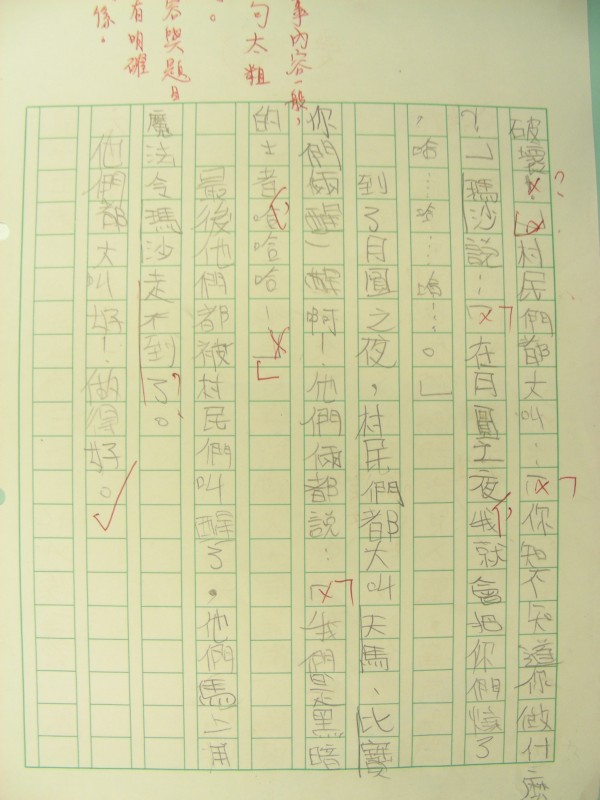 事內容一般，
句太粗
。
容與題目
有明確
係。
破壞！」村民們都大叫：「你知不知道你做什麼
？」瑪沙說：「在月圓之夜我就會把你們了
，哈……哈……哈！。」
到了月圓之夜，村民們都大叫天馬、比寶
你們倆醒一醒啊！他們倆都說：「我們是黑暗
的士者哈哈哈！」
最後他們都被村民們叫醒了，他們馬上用
魔法令瑪沙走不到了。
他們都大叫好！做得好。